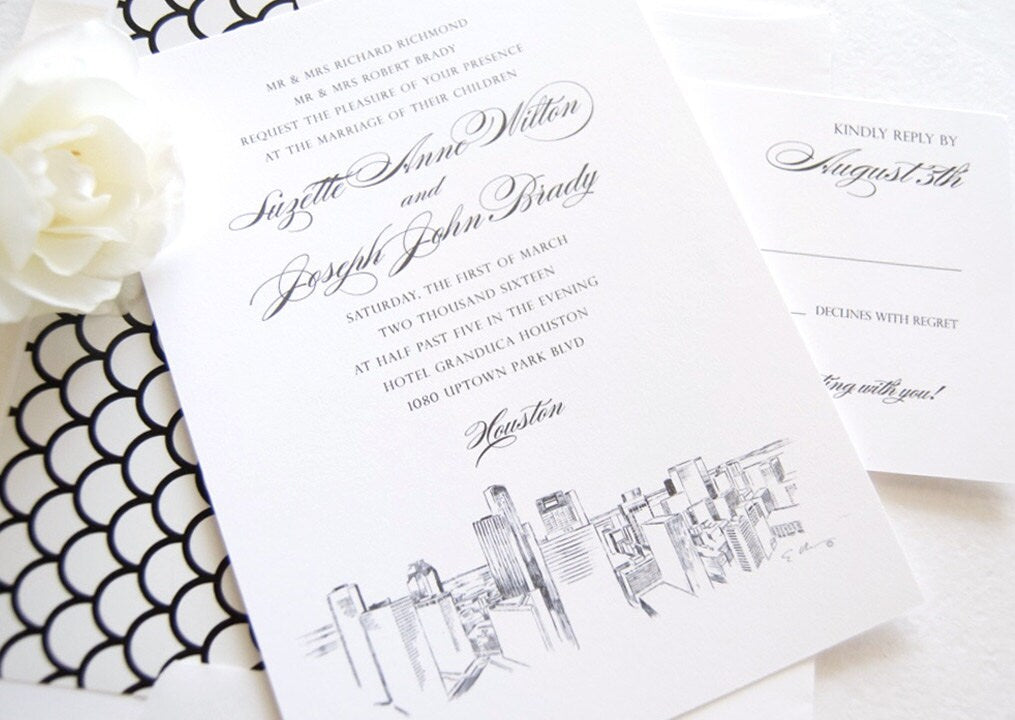 MR & MRS RICHARD RICHMOND
MR & MRS ROBERT BRADY
REQUEST THE PLEASURE OF YOUR PRESENCE
AT THE MARRIAGE OF THEIR CHILDREN
Suzette Anne Wilton
and
Joseph John Brady
SATURDAY, THE FIRST OF MARCH
TWO THOUSAND SIXTEEN
AT HALF PAST FIVE IN THE EVENING
HOTEL GRANDUCA HOUSTON
1080 UPTOWN PARK BLVD
Houston
KINDLY REPLY BY
August 5th
DECLINES WITH REGRET
with you!